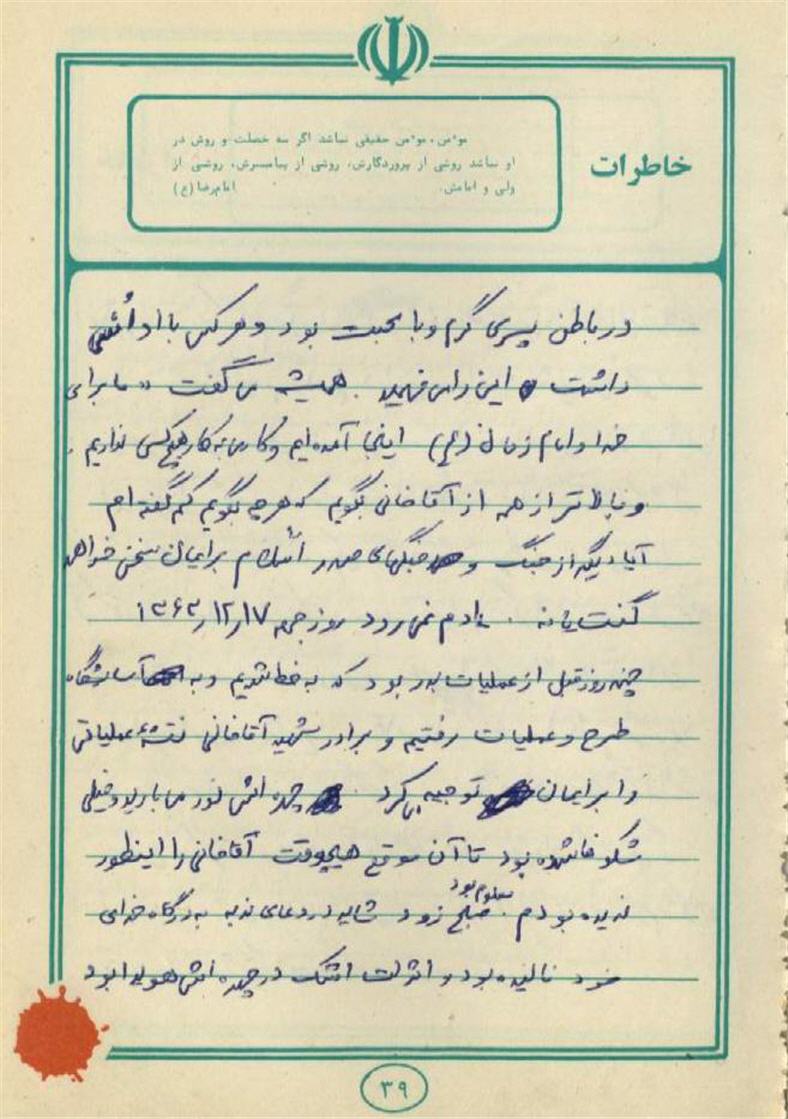 خاطرات
موءمن، موءمن حقیقی نباشد اگر سه خصلت و روش در
او نباشد روشی از پروردگارش، روشی از پیامبرش، روشی از
ولی و امامش. امام رضا (ع)
در باطن پسری گرم و با محبت بود و هر کس با او اُنس
داشت این را می فهمید. همیشه می گفت « ما برای
خدا و امام زمان (عج) اینجا آمده ایم و کاری به کار هیچ کس نداریم.
و بالاتر از همه از آقاخانی بگویم که هر چه بگویم کم گفته ام
آیا دیگر از جنگ و جنگهای صدر اسلام برایمان سخن خواهد
گفت یا نه. یادم نمی رود روز جمعه ۱۳۶۳٫۱۲٫۱۷
چند روز قبل از عملیات بدر بود که به خط شدیم و به آسایشگاه
طرح و عملیات رفتیم و برادر شهید آقاخانی نقشه عملیاتی
را برایمان توجیه می کرد. چهره اش نور می بارید و خیلی
شکوفا شده بود تا آن موقع هیچوقت آقاخانی را اینطور
ندیده بودم. معلوم بود صبح زود شاید در دعای ندبه به درگاه خدای
خود نالیده بود و اثرات اشک در چهره اش هویدا بود
۳۹